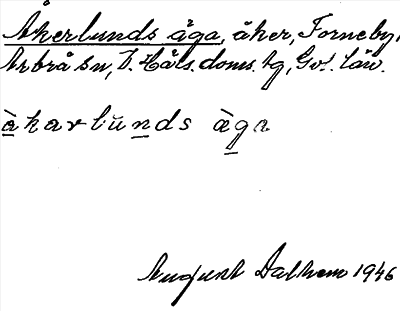 Åkerlunds äga, åker, Forneby,
Arbrå sn, V. Häls. doms. tg, Gvl. län.
àkarlùnds àga
August Dalhem 1946